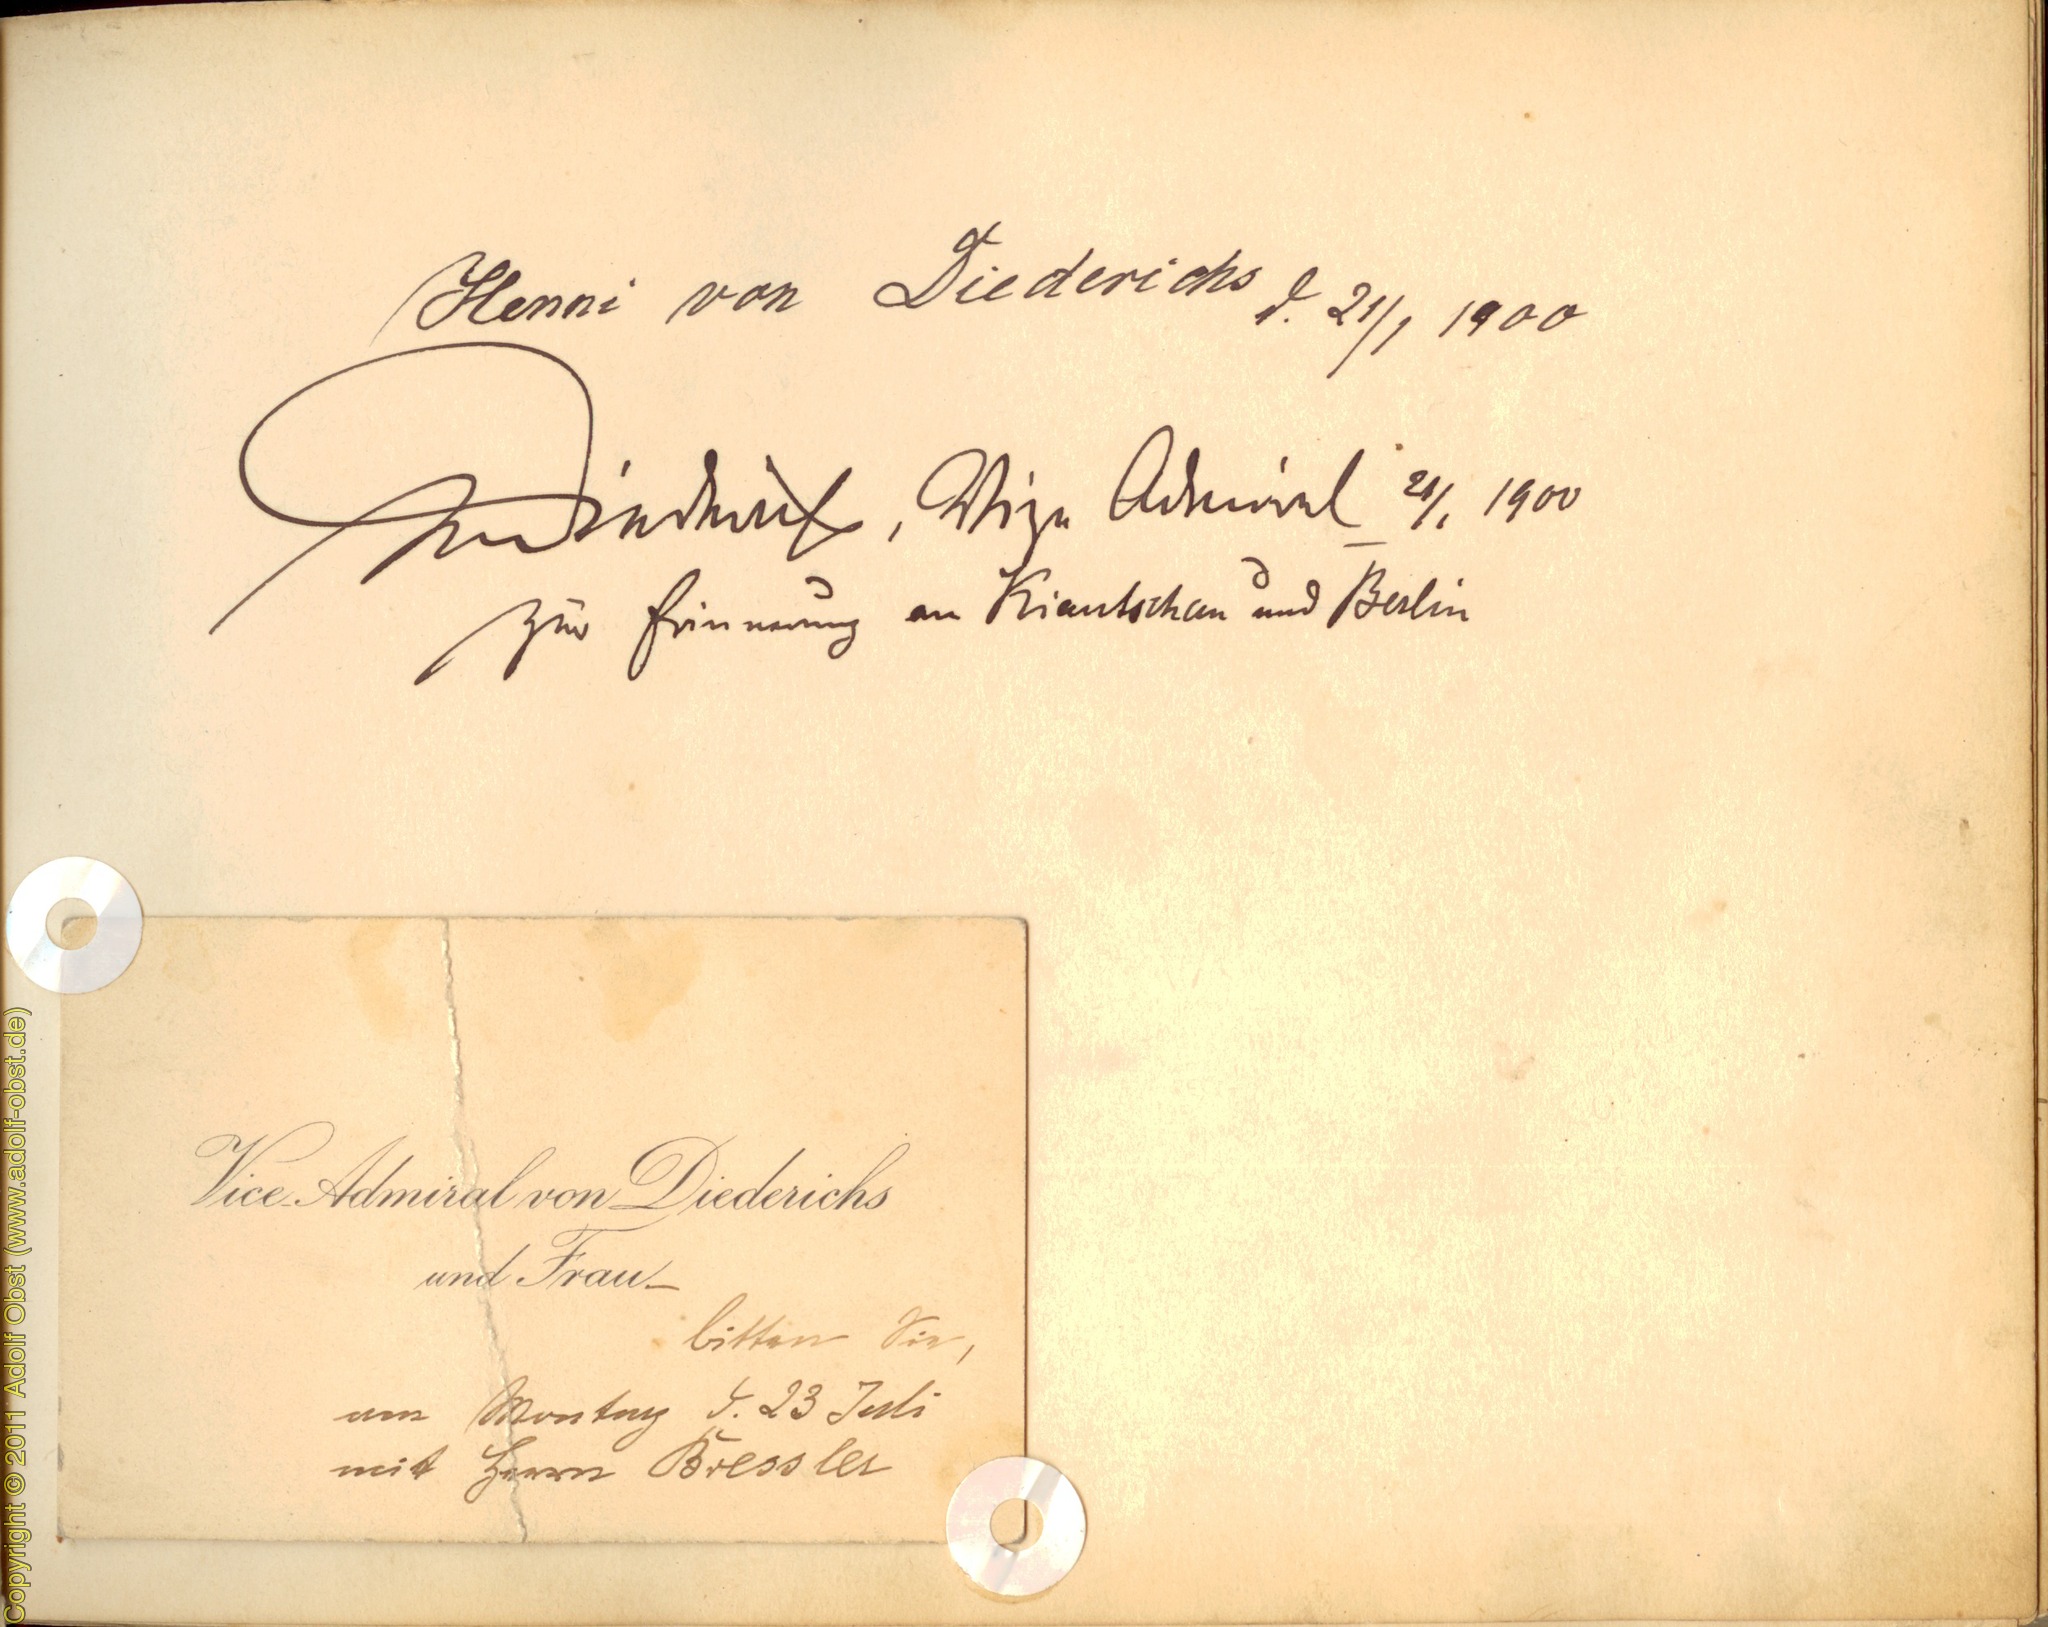 Henni von Diederichs d. 21/1 1900
von Diederichs, Vize Admiral 21/1 1900
zur Erinnerung an Kiautschau und Berlin
Vice-Admiral von Diederichs
und Frau
bitten Sie,
am Montag d. 23 Juli
mit Herrn Bressler
Copyright © 2011 Adolf Obst (www.adolf-obst.de)